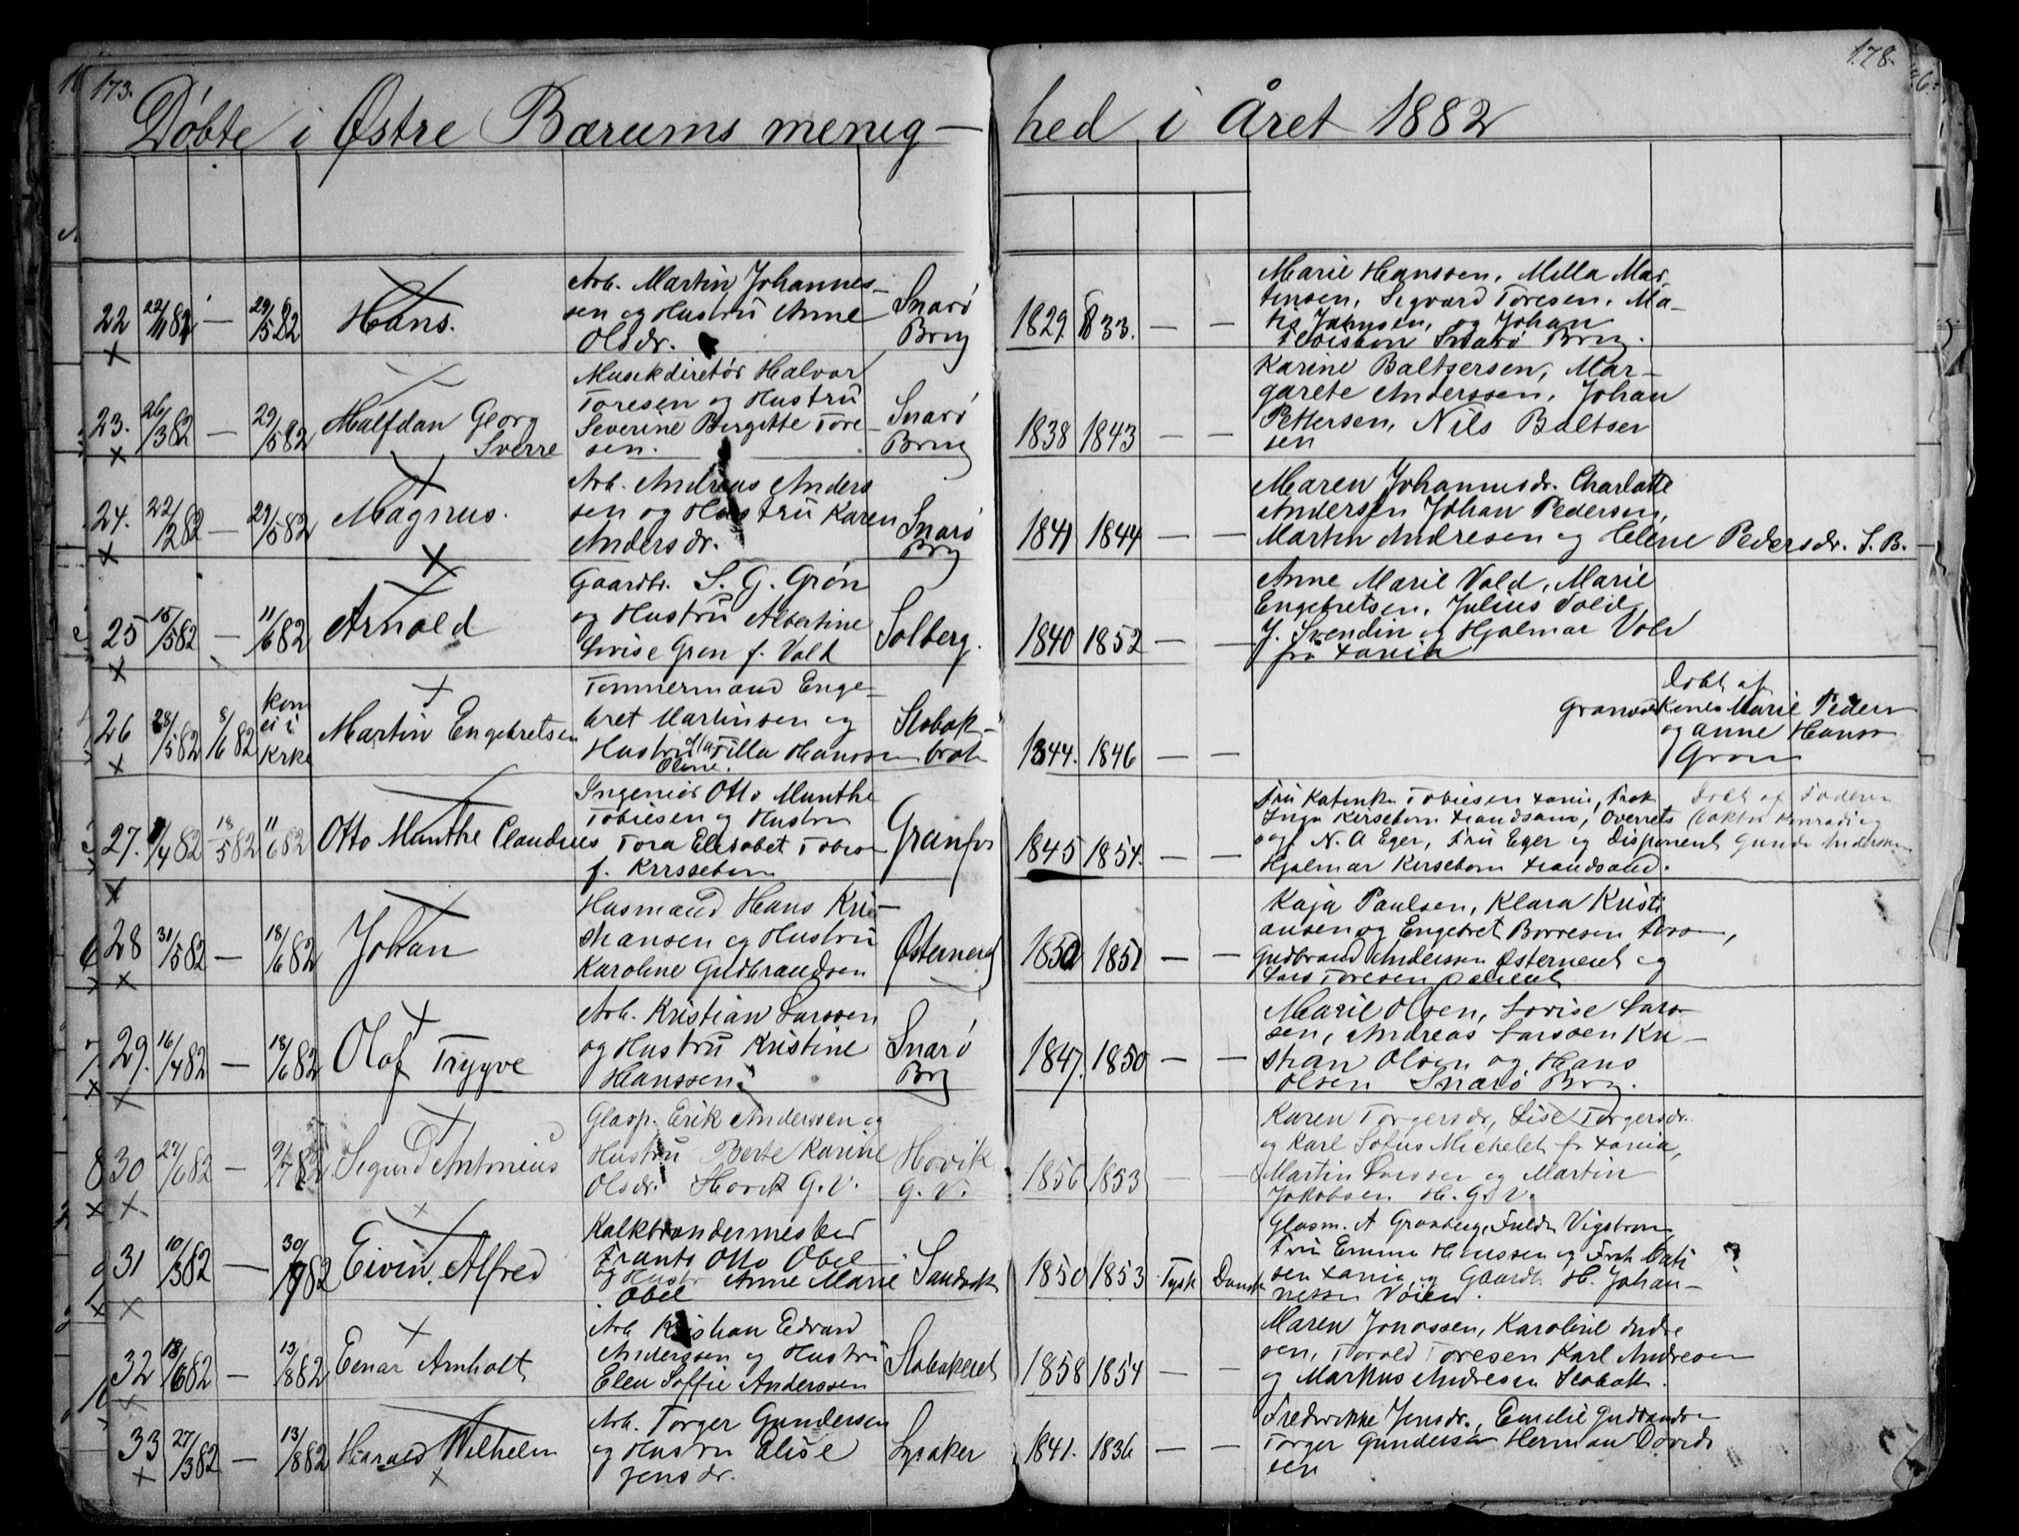 173.
178.
Døbte i Østre Bærums menig-
hed i Året 1882
22 22/11 81 — 29/5 82 Hans.
Arb. Martin Johannes-
sen og Hustru Anne
Olsdr.
Snarø
Brug
1829. 1833. — —
Marie Hanssen, Milla Mar-
tinsen, Sigvard Toresen, Ma-
og Johan
Snarø Brug.
23. 26/3 82 — 29/5 82 Halfdan Georg
Sverre
Musikdiretør Halvor
Toresen og Hustru
Severine Birgitte Tore-
sen.
Snarø
Brug
1838 1843 — —
Karine Baltsersen, Mar-
garete Anderssen, Johan
Pettersen, Nils Baltser
sen
24. 22/2 82 — 29/5 82 Magnus.
Arb. Andreas Anders
sen og Hustru Karen
Andersdr.
Snarø
Brg
1841 1844 — —
Maren Johannesdr. Charlotte
Andersen Johan Pedersen,
Martin Andresen og Helene Pedersdr. S. B.
25 15/5 82 — 11/6 82 Arnold
Gaardbr. S. G. Grøn
og Hustru Albertine
Lovise Grøn f. Vold
Solberg.
1840 1852 — —
Anne Marie Vold, Marie
Engebretsen, Julius Vold
J. Svendin og Hjalmar Vold
fra Xania
26 28/5 82 8/6 82 Kom
ei i
Krke
Martin Engebretsen
Tømmermand Enge-
bret Martinsen og
Hustru Matilla Hanssen
Oline.
Stabæk-
bråt
1844. 1846 — —
Døbt af
Marie Peders
og Anne Hanss
Grøn
27. 9/4 82 18/5 82 11/6 82 Otto Munthe Claudius
Ingeniør Otto Munthe
Tobiesen og Hustru
Tora Elisabet Tobies
f. Kirsebom
Granfos
1845 1854. — —
Fru Katinka Tobiesen Xania, Frøk
Inga Kirsebom Xandsand, Overrets
sagf N. A Eger, Fru Eger og Disponent
Hjalmar Kirsebom Xandsand.
Døbt af Faderen
28 31/5 82 — 18/6 82 Johan
Husmand Hans Kri-
stiansen og Hustru
Karoline Gudbrandsen
Østerneset
1850 1851 — —
Kaja Paulsen, Klara Kristi
ansen og Engebret Borresen
Gudbrand Anderssen Østerneset og
Lars Toresen
29. 16/4 82 — 18/6 82 Olaf Trygve
Arb. Kristian Larssen
og Hustru Kristine
Hanssen
Snarø
Brg
1847. 1850 — —
Marie Olsen, Lovise Lars-
sen, Andreas Larssen Kri-
stian Olsen og Hans
Olsen Snarø Brg.
30 27/6 82 — 9/7 82 Sigurd Antonius
Glasp. Erik Anderssen og
Hustru Berte Karine
Olsdr. Høvik G. V.
Høvik
G. V.
1856 1853 — —
Karen Torgersdr, Lise Torgersdr.
og Karl Sofus Michelet fr Xania,
Martin Larssen og Martin
Jakobsen H. G. V.
31 10/3 82 — 30/7 82 Eivin Alfred
Kalkbrændermester
Frants Otto Obel
og Hustr Anne Marie
Obel
Sandvik
1850 1853 Tysk Dansk
Glasm. A Granberg, Vigstrøm
Fru Emma Hanssen og Frøk
sen Xania og Gaardb. H. Johan-
nessen Vøien.
?
32 18/6 82 — 13/8 82 Einar Arnholt
Arb Kristian Edvard
Anderssen og Hustru
Elen Soffie Anderssen
Stabækset
1858 1854 — —
Maren Jonassen, Karoline Andre
sen, Torald Toresen Karl Andresen
og Markus Andresen Stabæk.
33 27/3 82 — 13/8 82 Harald Wilhelm
Arb. Torger Gundersen
og Hustru Elise
Jensdr.
Lysaker
1841. 1836 — —
Fredrikke Jensdr., Emelie Gudbands-
Torger Gundersen Herman David
sen